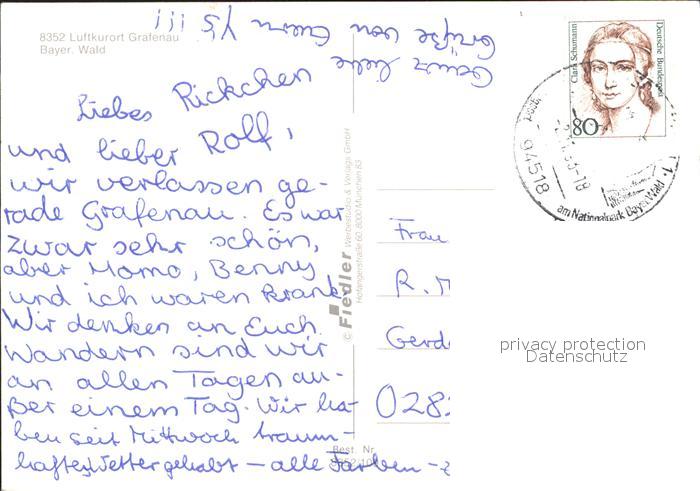 8352 Luftkurort Grafenau
Bayer. Wald
Liebes Rickchen
und lieber Rolf,
wir verlassen ge-
rade Grafenau. Es war
zwar sehr schön,
aber Momo, Benny
und ich waren krank.
Wir denken an Euch.
Wandern sind wir
an allen Tagen au-
ßer einem Tag. Wir ha-
ben seit Mittwoch traum-
haftes Wetter gehabt – alle Farben –
Ganz liebe
Grüße von Euern
© Fiedler Werbestudio & Verlags GmbH
Hofangerstraße 60, 8000 München 83
Best. Nr.
Deutsche Bundespost
Clara Schumann
80
94518
am Nationalpark Bayer. Wald
Frau
R.
Gerd
028
privacy protection
Datenschutz